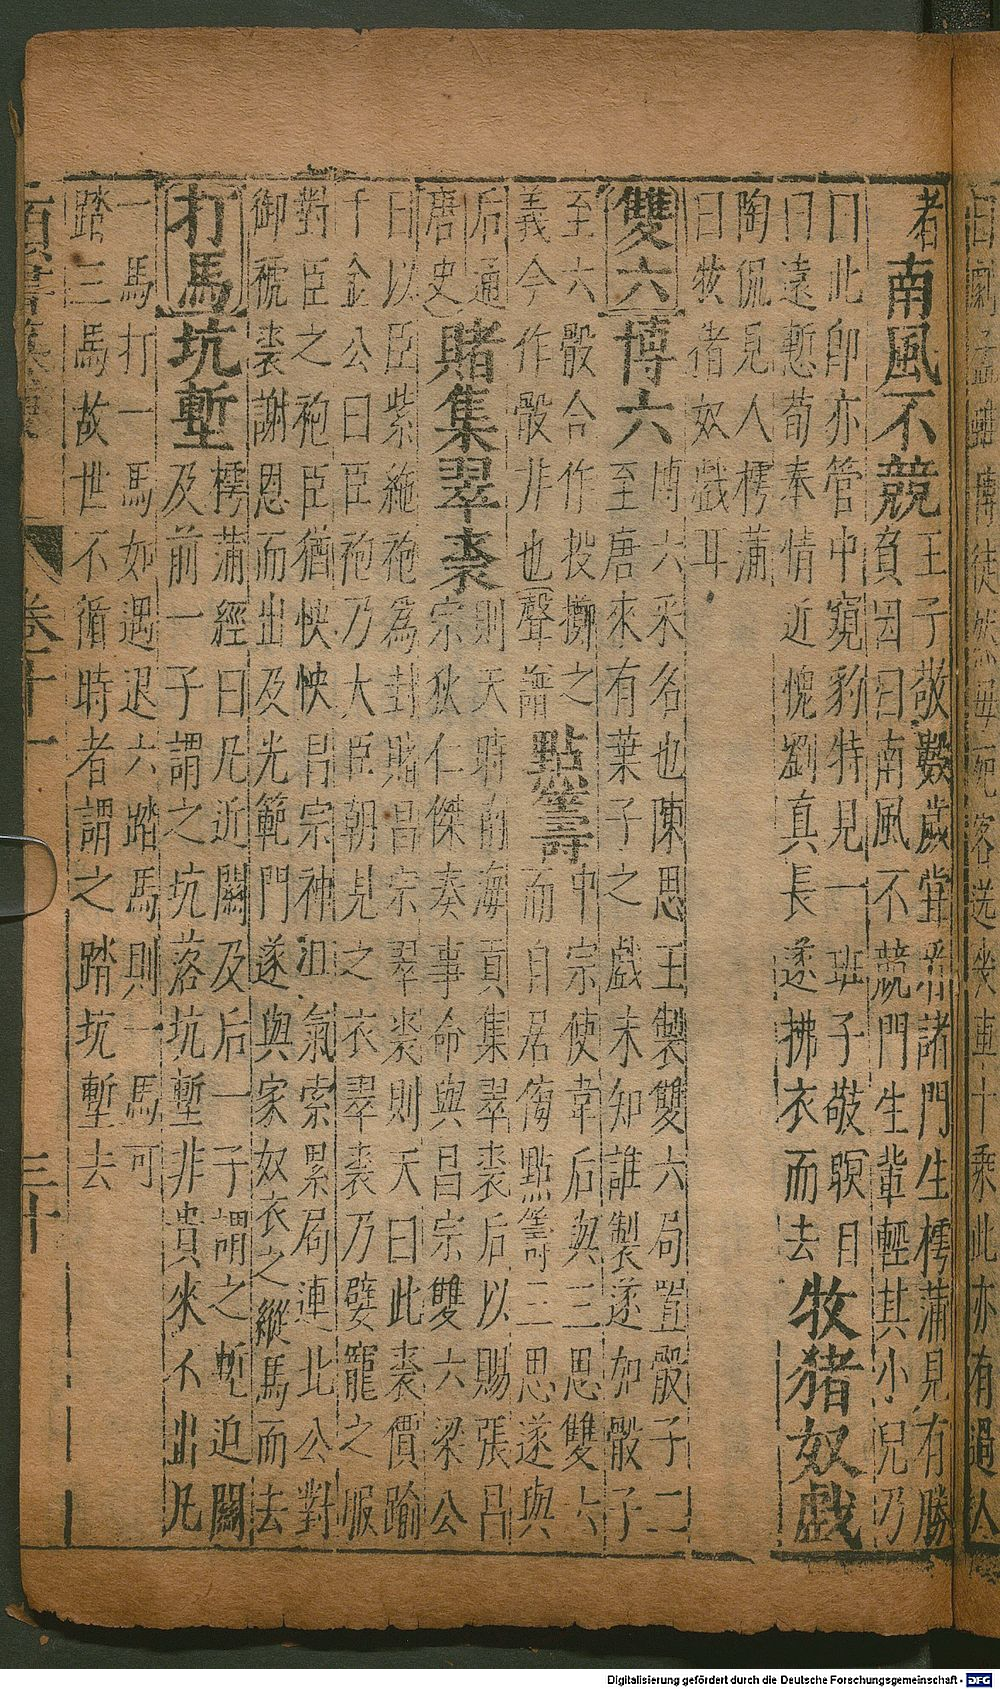 孟雖博徒然母死客送喪車千乘此亦有過人
者 南風不競 王子敬數歲嘗看諸門生樗蒲見有勝
負因曰南風不競門生輩輕其小兒乃
曰此郎亦管中窺豹特見一班子敬瞋目
曰遠慙荀奉情近愧劉真長遂拂衣而去 牧猪奴戲
陶侃見人樗蒲
曰牧猪奴戲耳
雙六 博六 博六采名也陳思王製雙六局置骰子二
至唐來有葉子之戲未知誰製遂如骰子
至六骰合作投擲之
義今作骰非也聲譜 點籌 中宗使韋后與三思雙六
而自居傍點籌三思遂與
后通
唐史 賭集翠裘 則天時南海貢集翠裘后以賜張昌
宗狄仁傑奏事命與昌宗雙六梁公
曰以臣紫絁袍為封賭昌宗翠裘則天曰此裘價踰
千金公曰臣袍乃大臣朝見之衣翠裘乃嬖寵之服
對臣之袍臣猶怏怏昌宗神沮氣索累局連北公對
御褫裘謝恩而出及光範門遂與家奴衣之縱馬而去
打馬 坑塹 樗蒲經曰凡近關及后一子謂之塹迫關
及前一子謂之坑落坑塹非貴采不出凡
一馬打一馬如遇退六踏馬則一馬可
踏三馬故世不循時者謂之踏坑塹去
三十
Digitalisierung gefördert durch die Deutsche Forschungsgemeinschaft - DFG